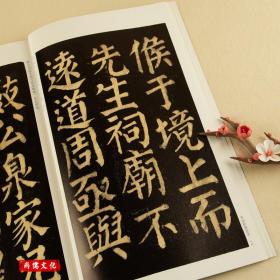 候于境上而
先生祠廟不
遠道周亟與
公泉家
尚儒文化